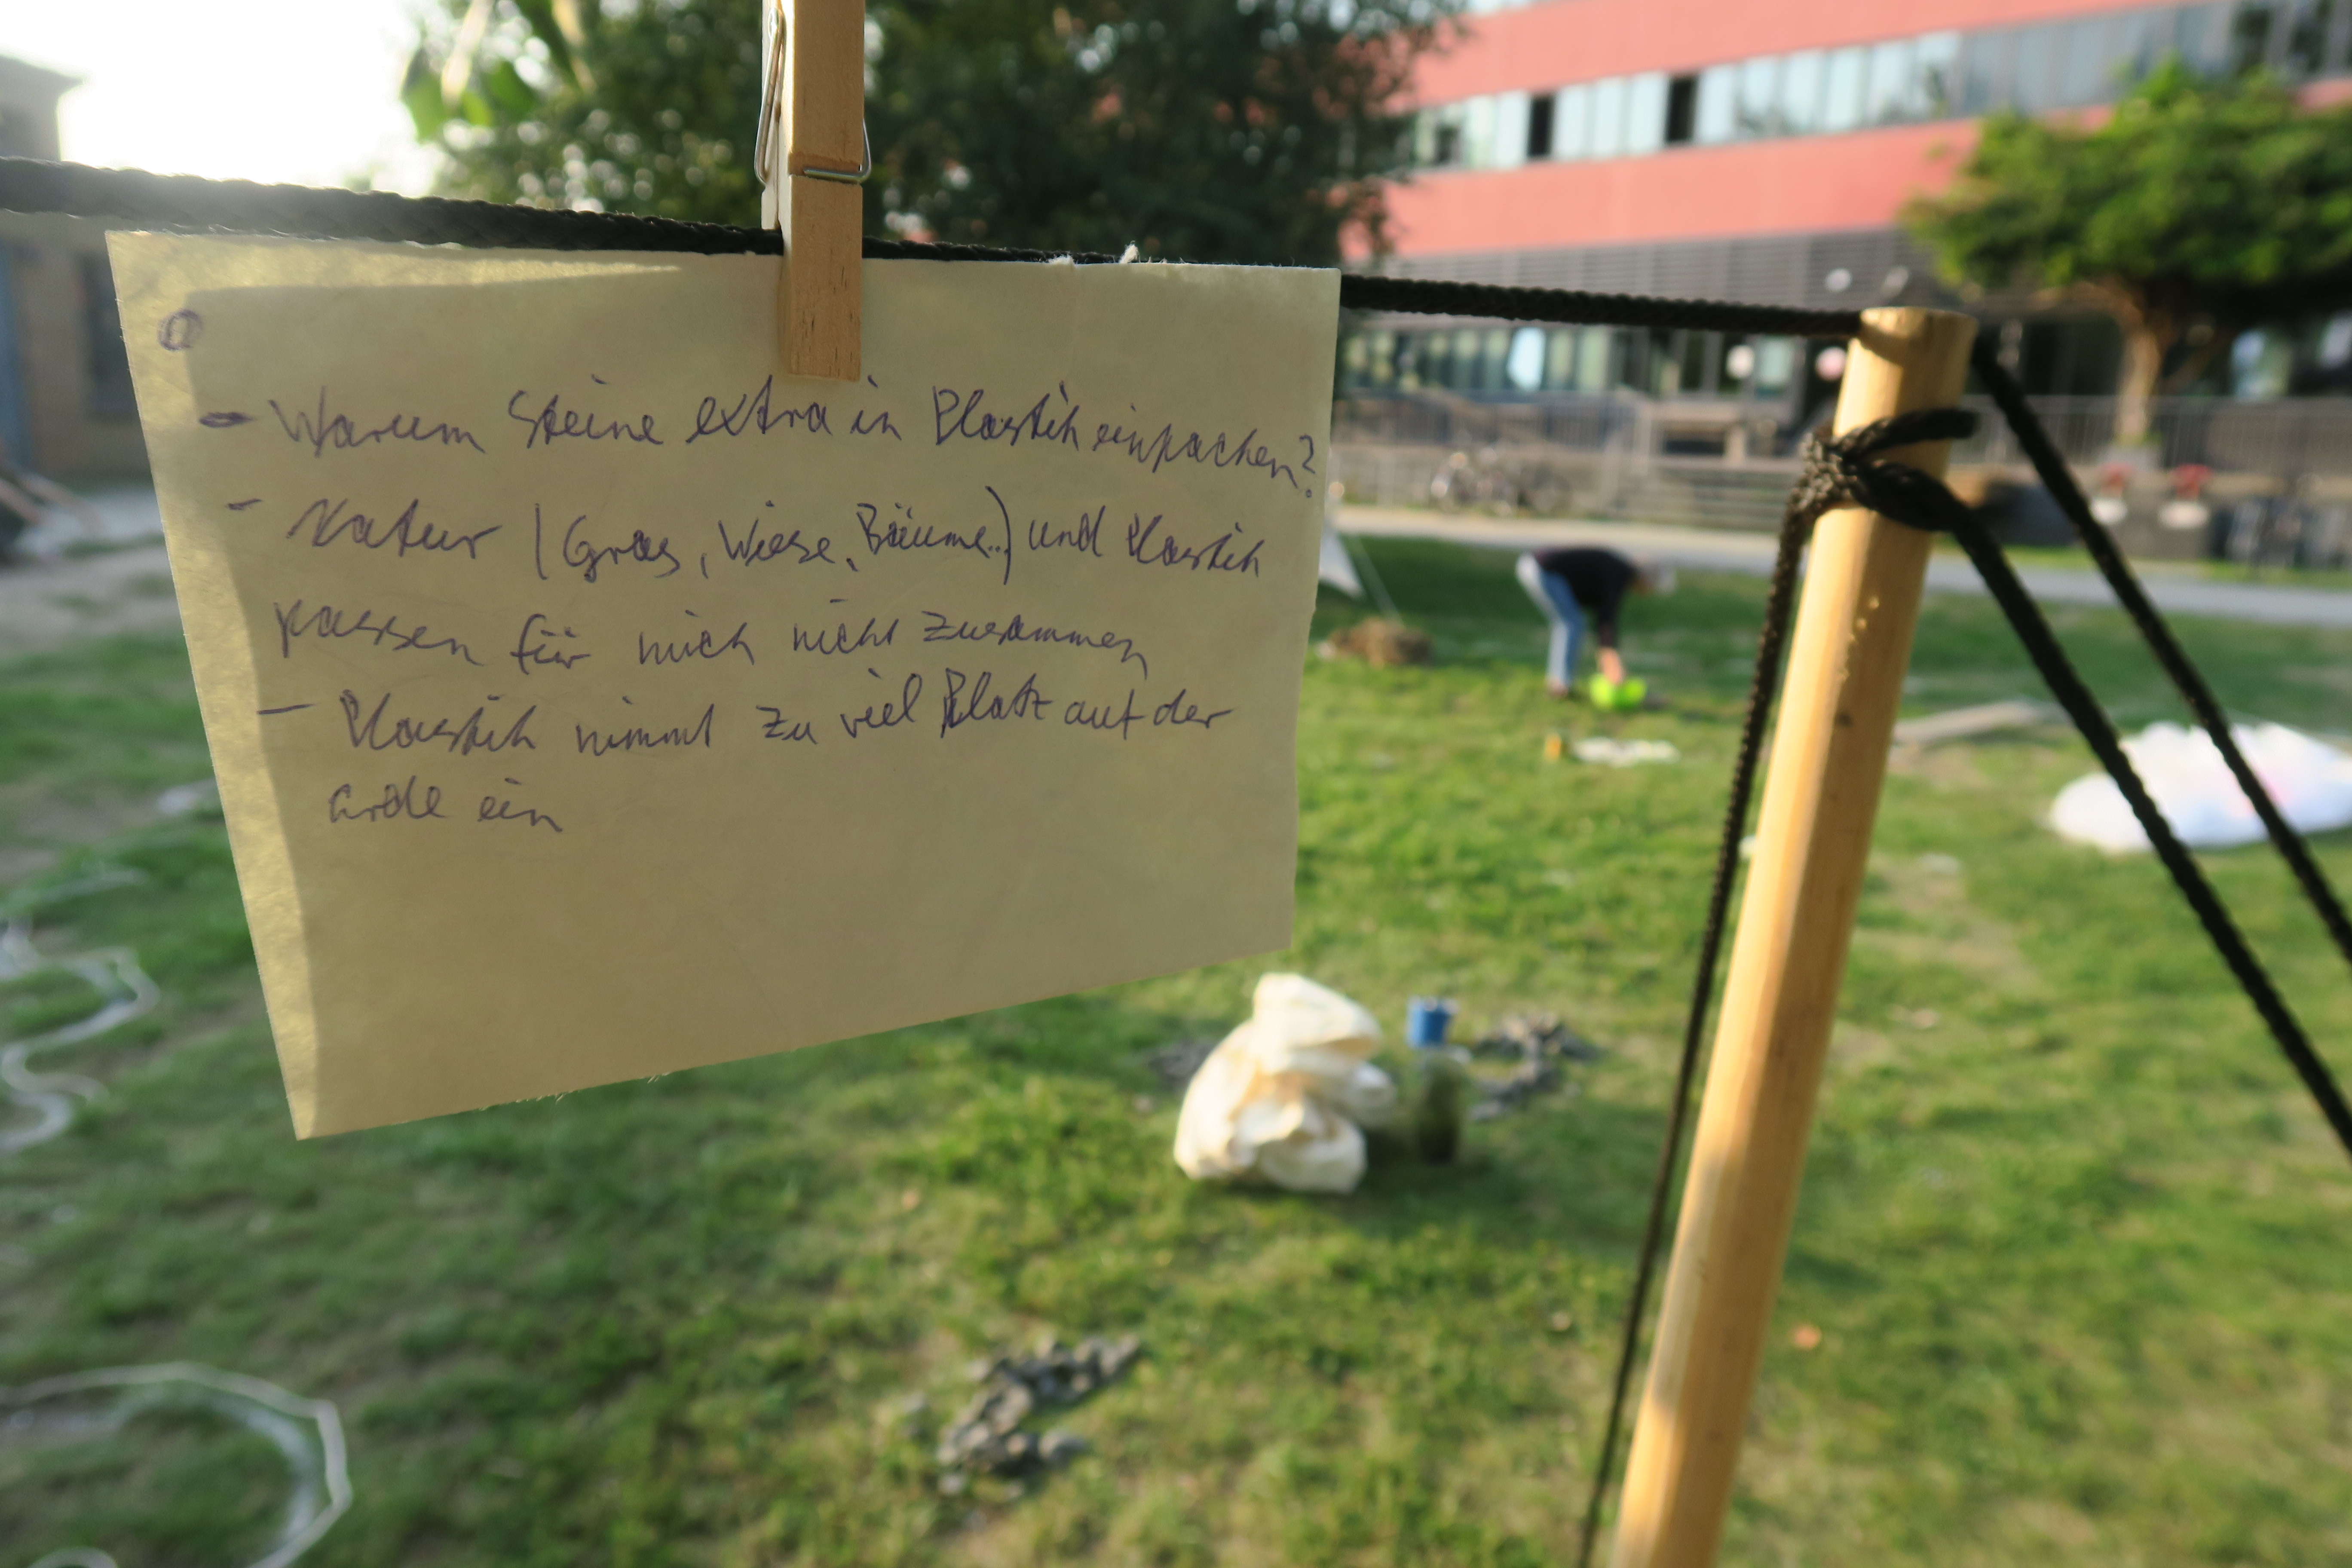 - Warum Steine extra in Plastik einpacken?
- Natur (Gras, Wiese, Bäume..) und Plastik
passen für mich nicht zusammen
- Plastik nimmt zu viel Platz auf der
Erde ein